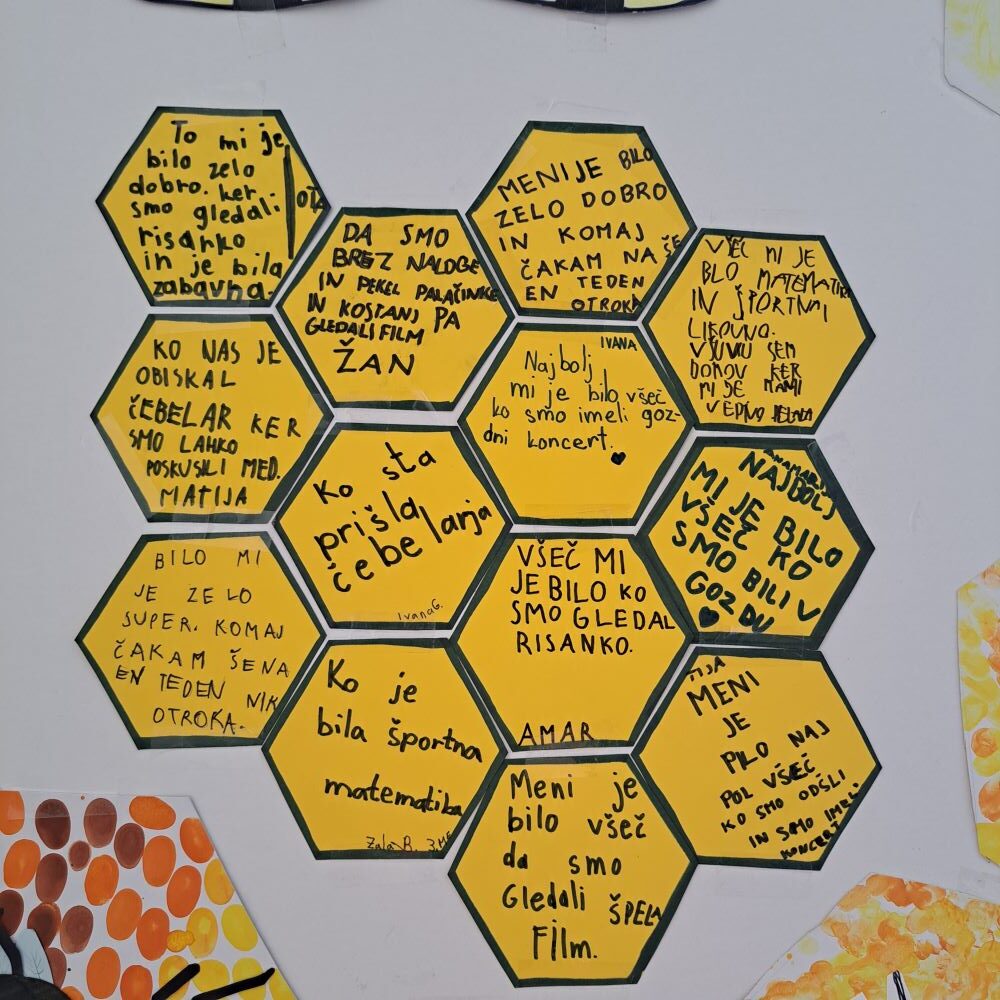 To mi je
bilo zelo
dobro. ker
smo gledali
risanko
in je bila
zabavna.
OTA
DA SMO
BREZ NALOGE
IN PEKEL PALAČINKE
IN KOSTANJ PA
GLEDALI FILM
ŽAN
MENI JE BILO
ZELO DOBRO
IN KOMAJ
ČAKAM NA ŠE
EN TEDEN
OTROKA
VŠEČ MI JE
BLO MATEMATIK
IN ŠPORTNA,
LIKOVNO.
DOMOV KER
MI JE MAMI
KO NAS JE
OBISKAL
ČEBELAR KER
SMO LAHKO
POSKUSILI MED.
MATIJA
IVANA
Najbolj
mi je bilo všeč
ko smo imeli goz-
dni koncert.
Ko sta
prišla
čebelarja
Ivana G.
ANAMARIJA
NAJBOLJ
MI JE BILO
VŠEČ KO
SMO BILI V
GOZDU
BILO MI
JE ZELO
SUPER. KOMAJ
ČAKAM ŠE NA
EN TEDEN NIK
OTROKA.
VŠEČ MI
JE BILO KO
SMO GLEDAL
RISANKO.
AMAR
Ko je
bila športna
matematika
Zala R.
MENI
JE
PILO NAJ
POL VŠEČ
KO SMO ODŠLI
IN SMO IMELI
KONCERT
Meni je
bilo všeč
da smo
Gledali ŠPELA
Film.